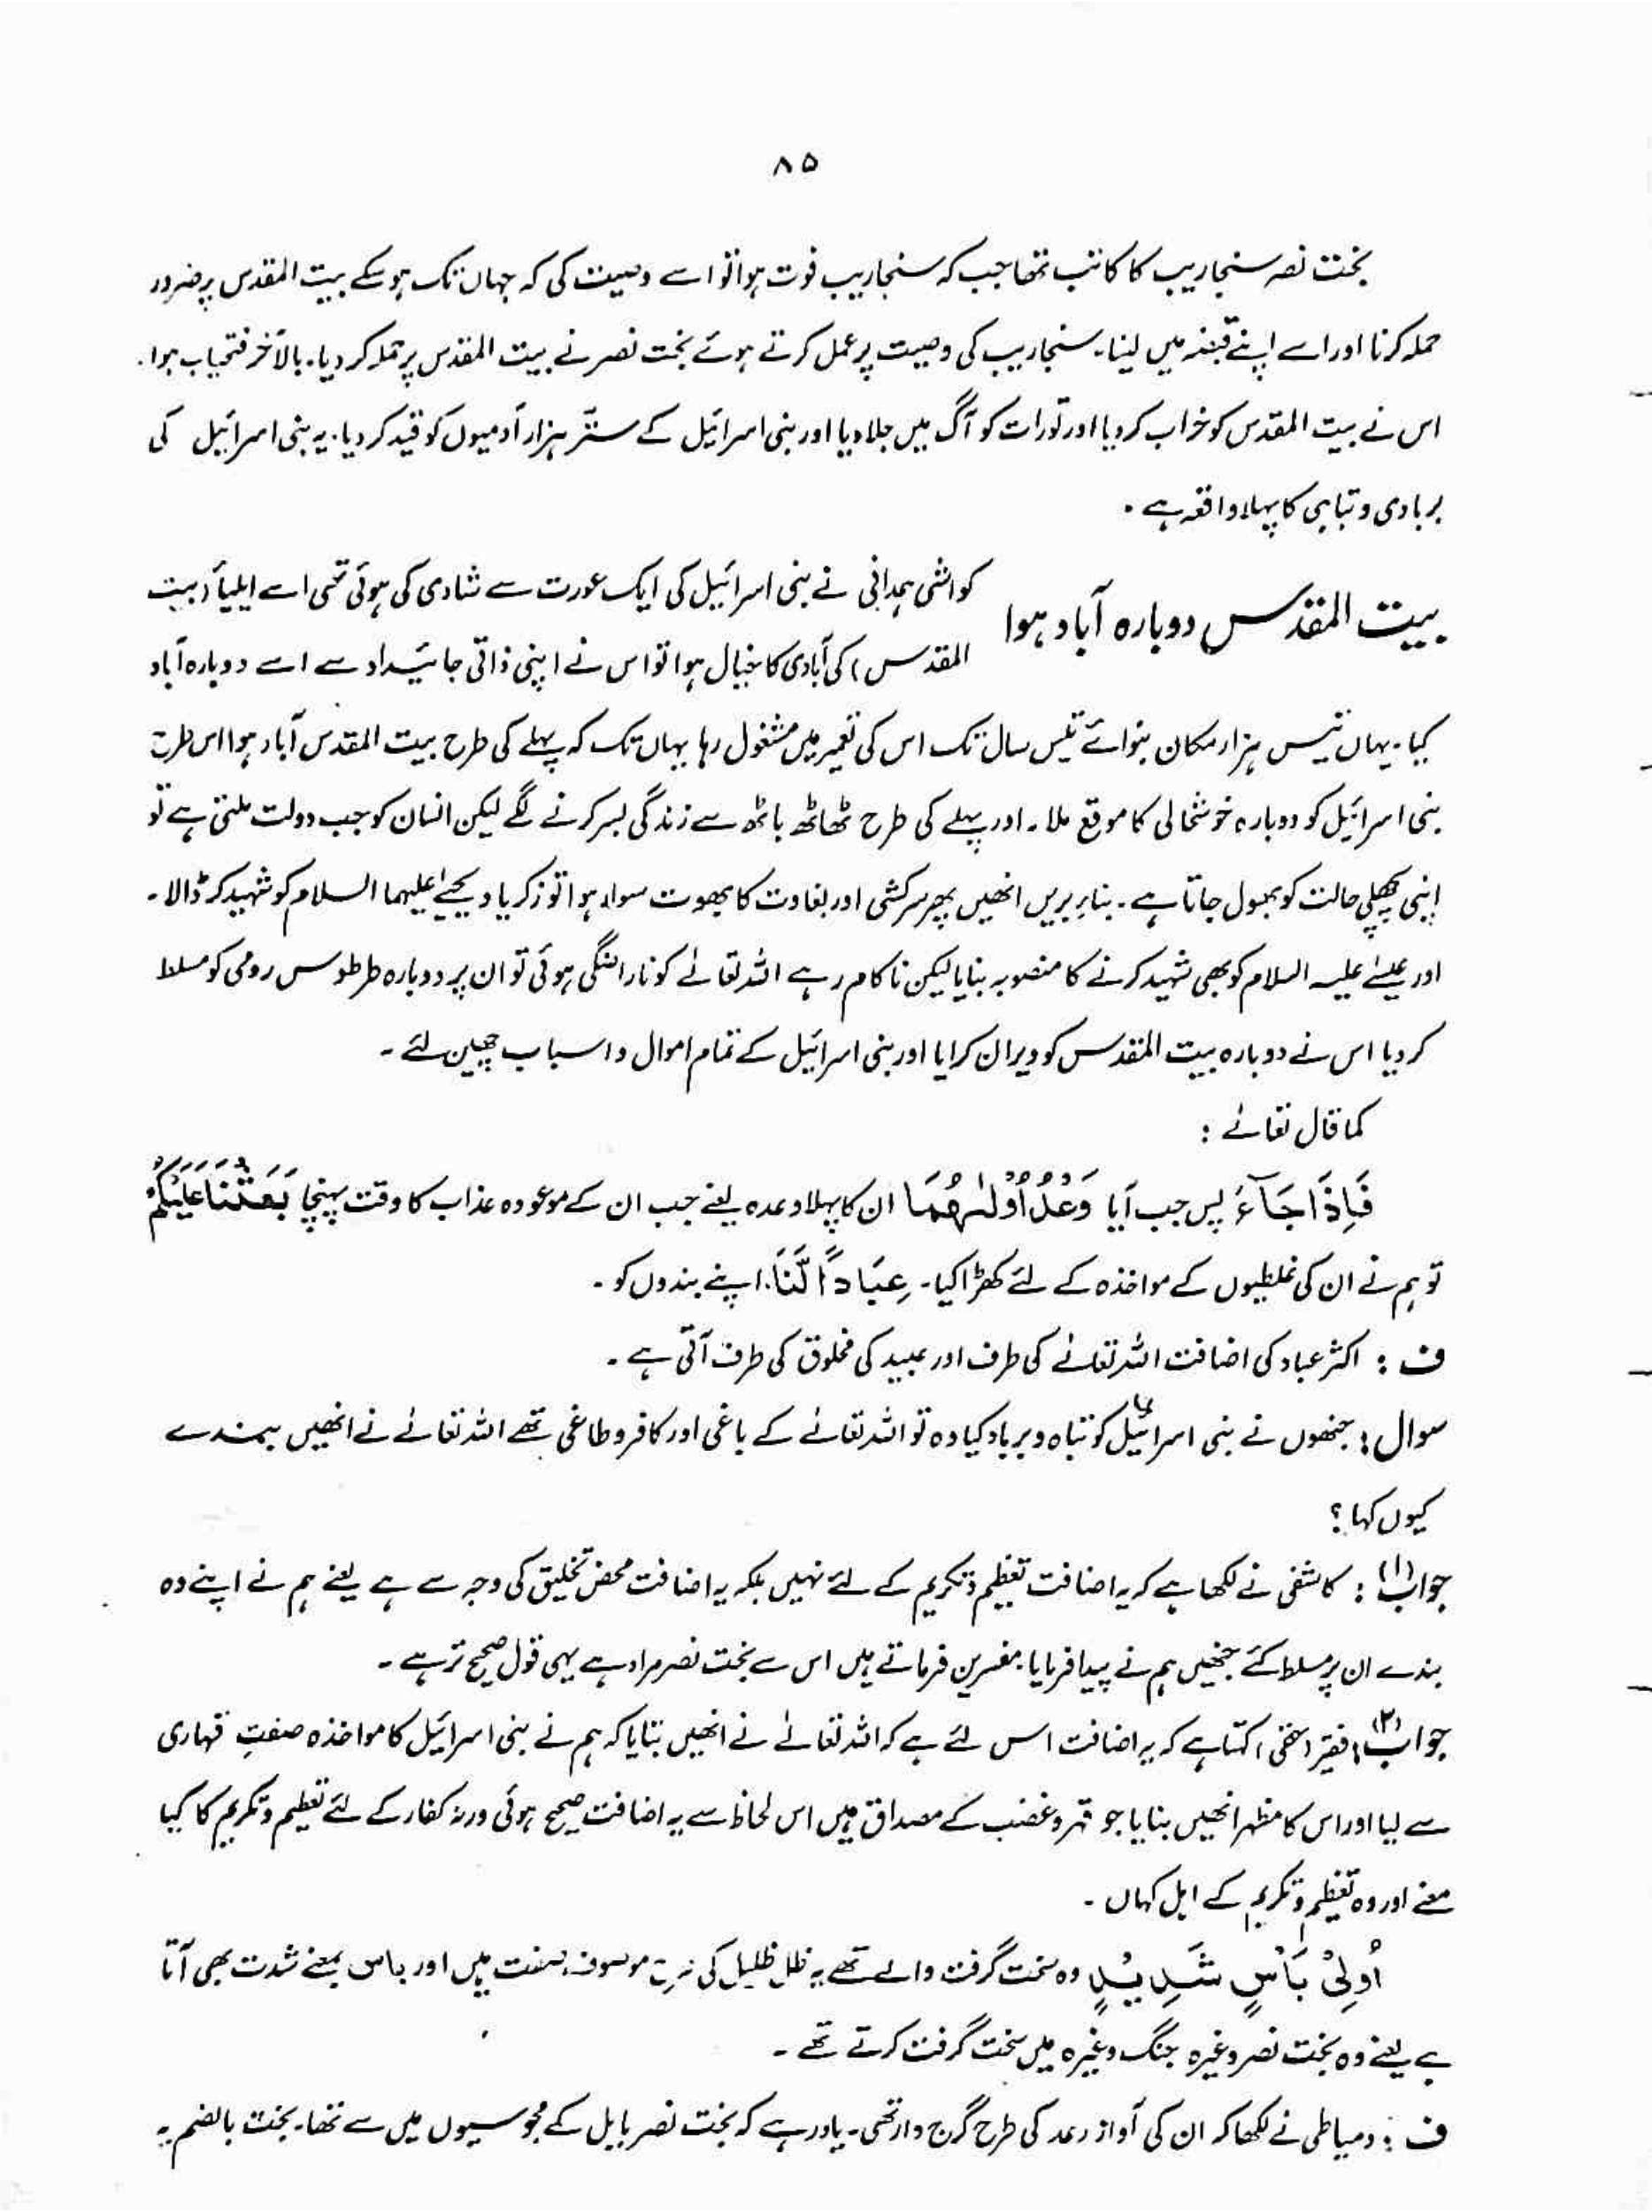 ۸۵
بخت نصر سنجاریب کا کاتب تھا جب کہ سنجاریب فوت ہوا تو اسے وصیت کی کہ جہاں تک ہو سکے بیت المقدس پر ضرور
حملہ کرنا اور اسے اپنے قبضہ میں لینا۔ سنجاریب کی وصیت پر عمل کرتے ہوئے بخت نصر نے بیت المقدس پر حملہ کر دیا۔ بالآخر فتحیاب ہوا۔
اس نے بیت المقدس کو خراب کر دیا اور تورات کو آگ میں جلا دیا اور بنی اسرائیل کے ستّر ہزار آدمیوں کو قید کر دیا۔ یہ بنی اسرائیل کی
بربادی و تباہی کا پہلا واقعہ ہے۔
بیت المقدس دوبارہ آباد ہوا
کواشی ہمدانی نے بنی اسرائیل کی ایک عورت سے شادی کی ہوئی تھی اسے ایلیاَ (بیت
المقدس) کی آبادی کا خیال ہوا تو اس نے اپنی ذاتی جائیداد سے اسے دوبارہ آباد
کیا۔ یہاں تیس ہزار مکان بنوائے تیس سال تک اس کی تعمیر میں مشغول رہا یہاں تک کہ پہلے کی طرح بیت المقدس آباد ہوا اس طرح
بنی اسرائیل کو دوبارہ خوشحالی کا موقع ملا۔ اور پہلے کی طرح ٹھاٹھ باٹھ سے زندگی بسر کرنے لگے لیکن انسان کو جب دولت ملتی ہے تو
اپنی پچھلی حالت کو بھول جاتا ہے۔ بنا بریں انھیں پھر سرکشی اور بغاوت کا بھوت سوار ہوا تو زکریا و یحیےٰ علیہما السلام کو شہید کر ڈالا۔
اور عیسےٰ علیہ السلام کو بھی شہید کرنے کا منصوبہ بنایا لیکن ناکام رہے اللہ تعالےٰ کو ناراضگی ہوئی تو ان پر دوبارہ طرطوس رومی کو مسلط
کر دیا اس نے دوبارہ بیت المقدس کو ویران کرایا اور بنی اسرائیل کے تمام اموال و اسباب چھین لئے۔
کما قال تعالےٰ :
فَاِذَا جَآءَ پس جب آیا وَعْدُ اُوْلٰىہُمَا ان کا پہلا وعدہ یعنے جب ان کے موعودہ عذاب کا وقت پہنچا بَعَثْنَا عَلَیْکُمْ
تو ہم نے ان کی غلطیوں کے مواخذہ کے لئے کھڑا کیا۔ عِبَادًا لَّنَا۔ اپنے بندوں کو۔
ف : اکثر عباد کی اضافت اللہ تعالےٰ کی طرف اور عبید کی مخلوق کی طرف آتی ہے۔
سوال : جنھوں نے بنی اسرائیل کو تباہ و برباد کیا وہ تو اللہ تعالےٰ کے باغی اور کافر و طاغی تھے اللہ تعالےٰ نے انھیں بندے
کیوں کہا؟
جواب (۱) : کاشفی نے لکھا ہے کہ یہ اضافت تعظیم و تکریم کے لئے نہیں بلکہ یہ اضافت محض تخلیق کی وجہ سے ہے یعنے ہم نے اپنے وہ
بندے ان پر مسلط کئے جنھیں ہم نے پیدا فرمایا۔ مفسرین فرماتے ہیں اس سے بخت نصر مراد ہے یہی قول صحیح تر ہے۔
جواب (۲) : فقیر (حقی) کہتا ہے کہ یہ اضافت اس لئے ہے کہ اللہ تعالےٰ نے انھیں بتایا کہ ہم نے بنی اسرائیل کا مواخذہ صفتِ قہاری
سے لیا اور اس کا مظہر انھیں بنایا جو قہر و غضب کے مصداق ہیں اس لحاظ سے یہ اضافت صحیح ہوئی ورنہ کفار کے لئے تعظیم و تکریم کا کیا
معنے اور وہ تعظیم و تکریم کے اہل کہاں۔
اُولِیْ بَاْسٍ شَدِیْدٍ وہ سخت گرفت والے تھے یہ ظل ظلیل کی موصوف صفت ہیں اور باس بمعنے شدت بھی آتا
ہے یعنے وہ بخت نصر وغیرہ جنگ وغیرہ میں سخت گرفت کرتے تھے۔
ف : دمیاطی نے لکھا کہ ان کی آواز رعد کی طرح گرج دار تھی۔ یاد رہے کہ بخت نصر بابل کے مجوسیوں میں سے تھا۔ بخت بالضم یہ